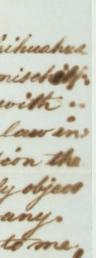 hihuahua
mischief.
with
law in
ion the
ly object
any.
to me,